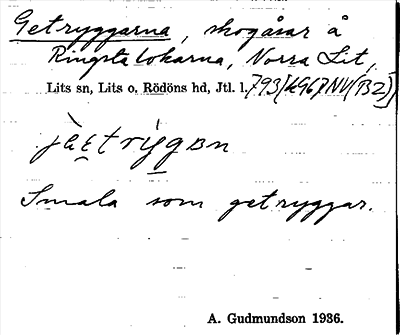 Getryggarna, skogåsar å
Ringsta lokarna, Norra Lit,
Lits sn, Lits o. Rödöns hd, Jtl. l.
jàetrýgɒn
Smala som getryggar.
A. Gudmundson 1936.